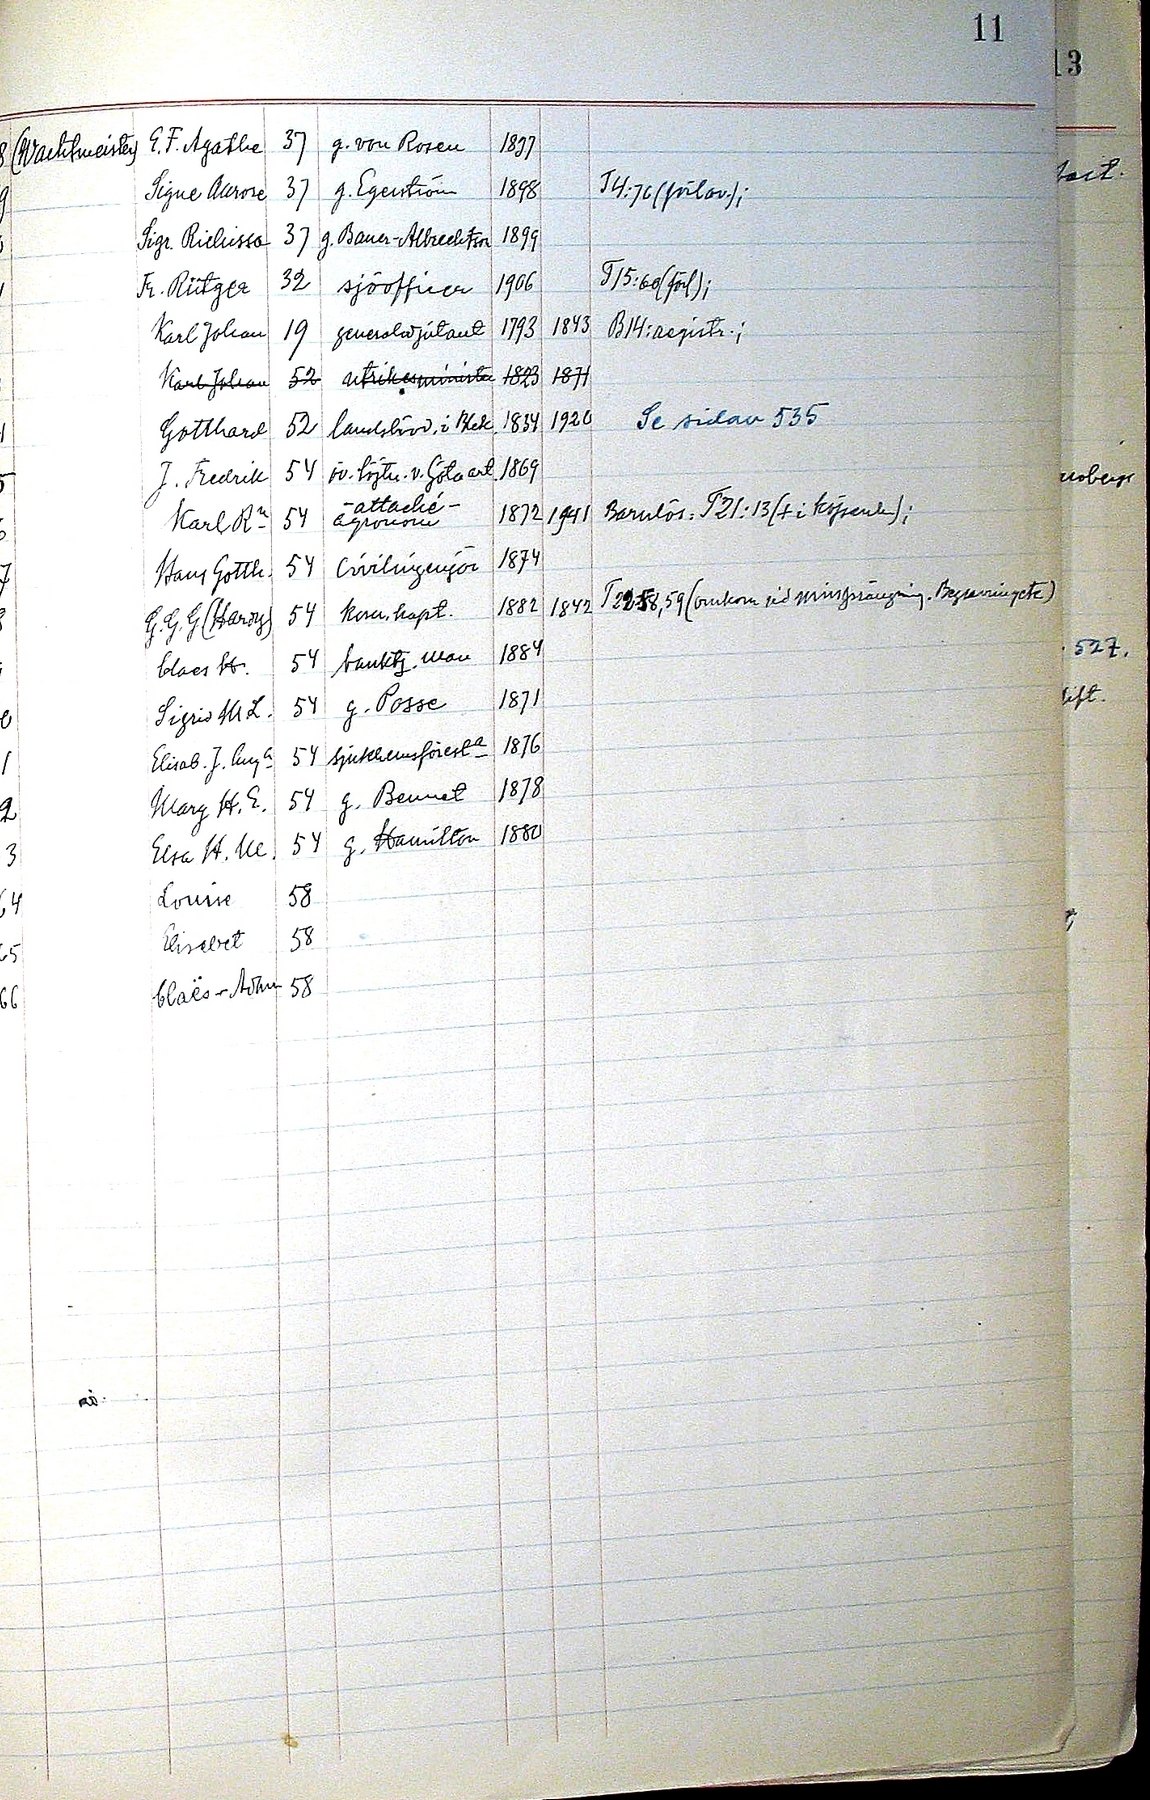 11
13
8 (Wachtmeister) E. F. Agathe 37 g. von Rosen 1897
9 Signe Aurore 37 g. Egerström 1898 T4:76 (förlov.);
Sigr. Richissa 37 g. Bauer-Albrechtson 1899
Fr. Rütger 32 sjöofficer 1906 T15:60 (förl);
Karl Johan 19 generaladjutant 1793 1843 B14: registr.;
Karl Johan 52 utrikesminister 1823 1871
Gotthard 52 landshövd. i Blek. 1834 1920 Se sidan 535
5 J. Fredrik 54 öv. löjtn. v. Göta art. 1869
6 Karl Rn 54 -attaché- agronom 1872 1941 Barnlös: T21:13 († i Köpenh.);
7 Hans Gotth. 54 Civilingenjör 1874
8 G. G. G (Harry) 54 kom. kapt. 1882 1842 T22:58,59 (omkom vid minsprängning. Begravning etc)
Claes H. 54 banktj. man 1884
527.
0 Sigrid M L. 54 g. Posse 1871
1 Elisab. J. Auga 54 sjukhemsföresta 1876
2 Mary H. E. 54 g. Bennet 1878
3 Elsa H. M. 54 g. Hamilton 1880
64 Louise 58
65 Elisabet 58
66 Claës-Adam 58